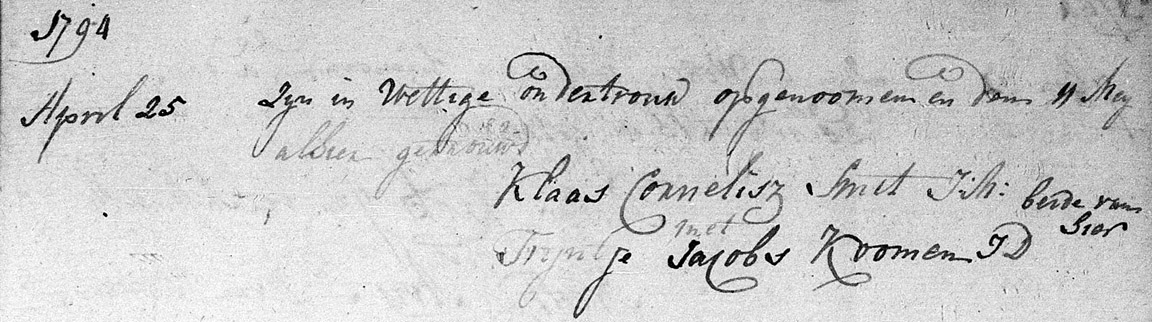 1794
April 25 Zyn in Wettige ondertrouw opgenoomen en den 11 Mey
alhier getrouwd
Klaas Cornelisz Smit J:M: beide van
hier
met
Tryntje Jacobs Koomen J D